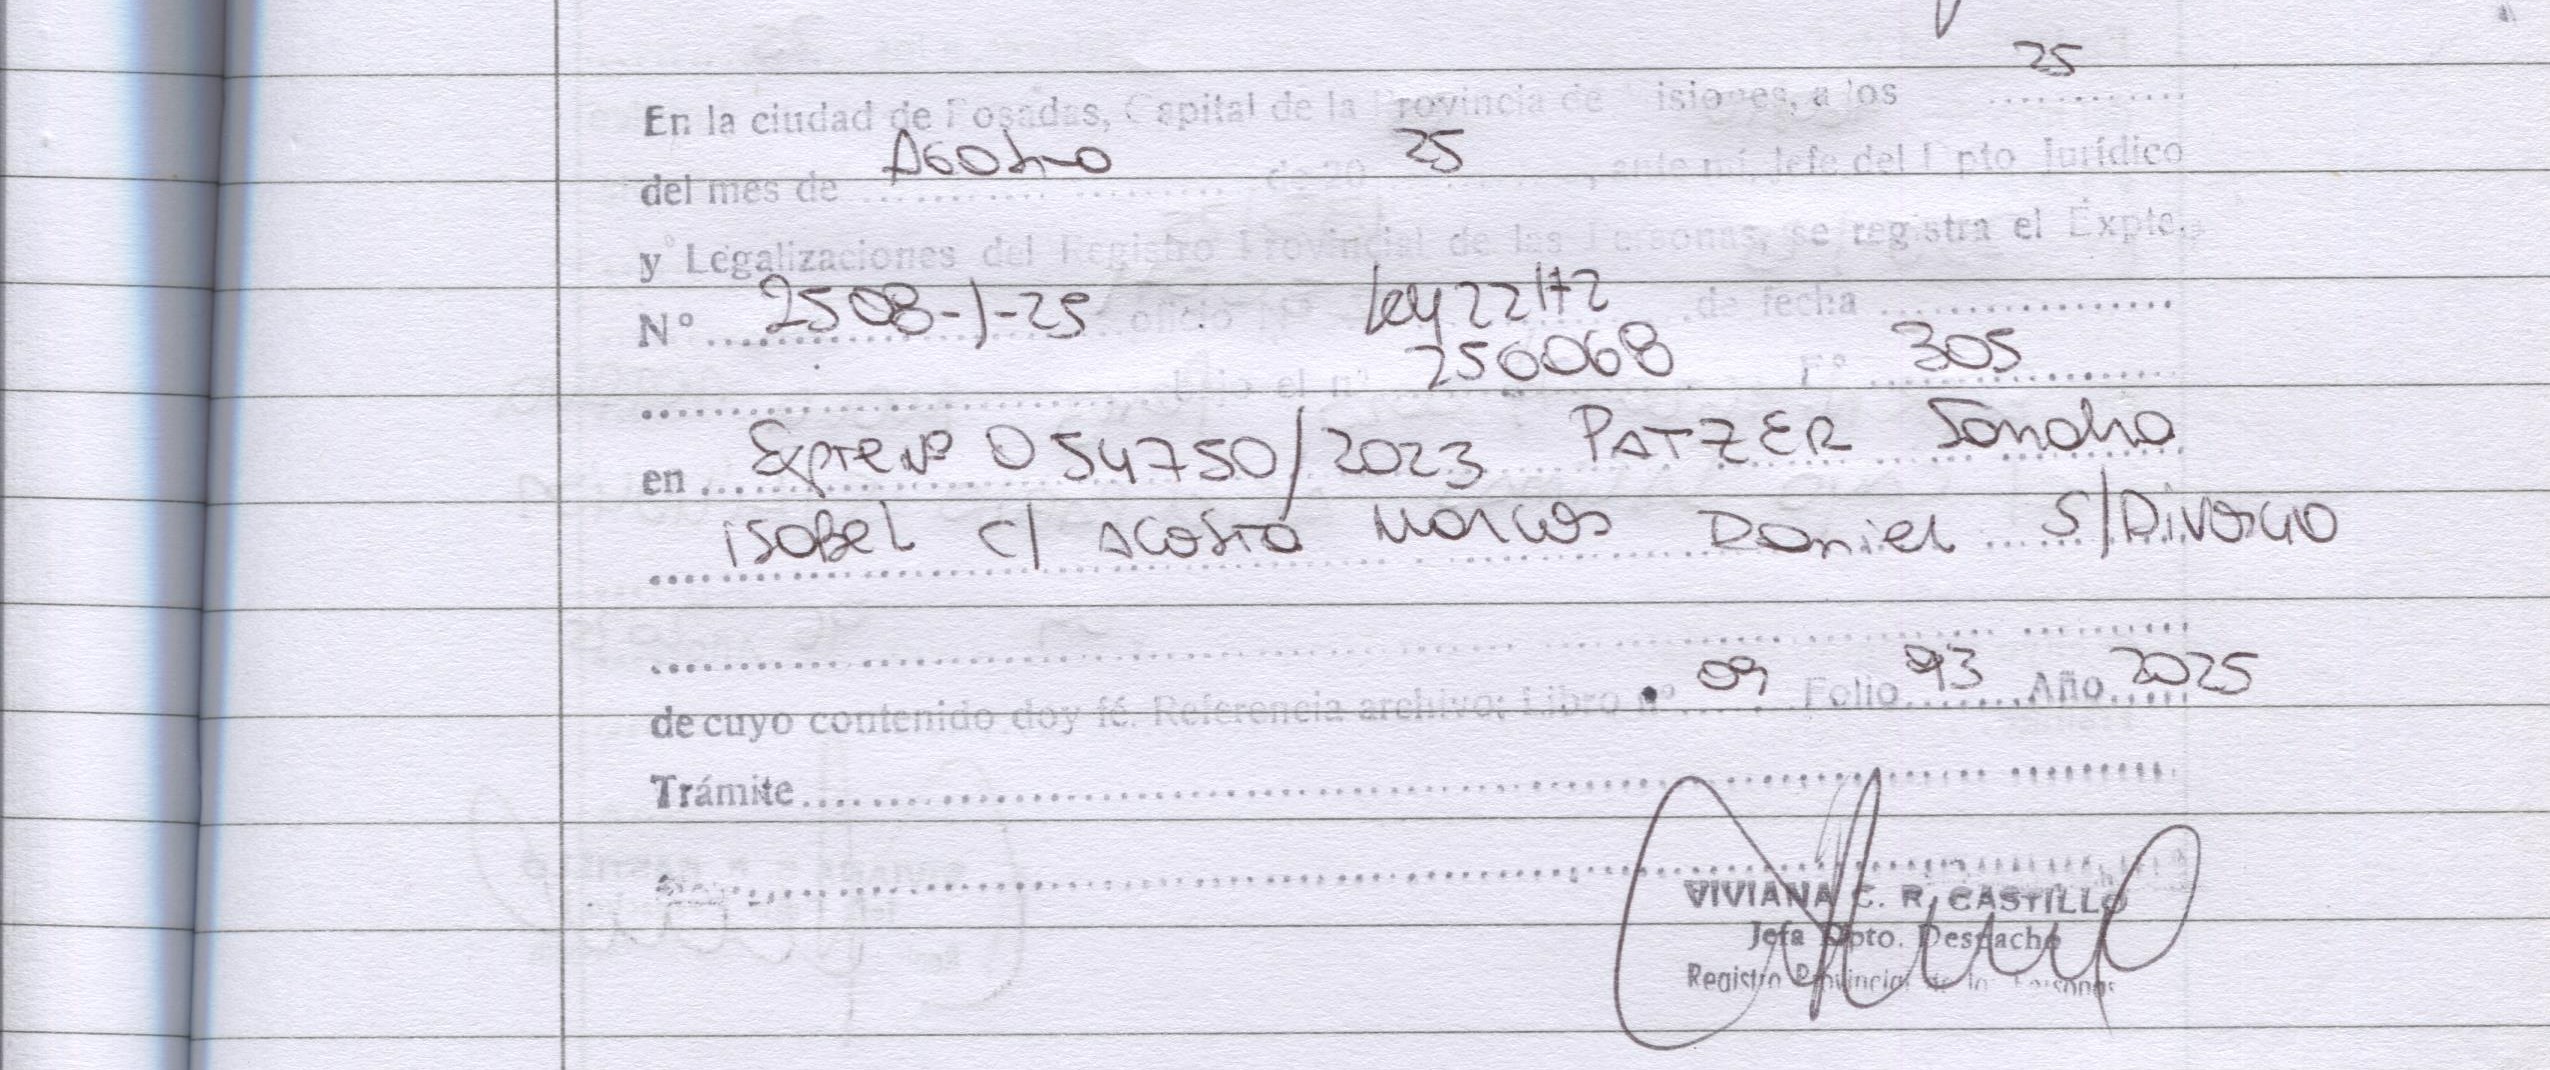 25
En la ciudad de Posadas, Capital de la Provincia de Misiones, a los ............
del mes de Agosto de 20 25, ante mí, Jefe del Dpto Jurídico
y Legalizaciones del Registro Provincial de las Personas, se registra el Expte.
Nº 2508-J-25 oficio Ley 22172 de fecha ............
bajo el nº 250068 Fº 305
en Expte Nº 054750/2023 PATZER Sandra
isabel c/ Acosta Marcos Daniel S/Divorcio
de cuyo contenido doy fé. Referencia archivo: Libro nº 09 Folio 93 Año 2025
Trámite
VIVIANA C. R. CASTILLO
Jefa Dpto. Despacho
Registro Provincial de las Personas